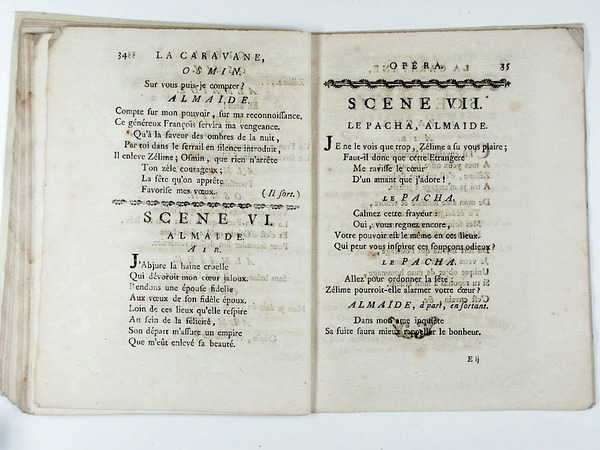 34
LA CARAVANE,
OSMIN.
Sur vous puis-je compter?
ALMAIDE.
Compte sur mon pouvoir, sur ma reconnoissance.
Ce généreux François servira ma vengeance.
Qu'à la faveur des ombres de la nuit,
Par toi dans le serrail en silence introduit,
Il enleve Zélime; Osmin, que rien n'arrête
Ton zèle courageux;
La fête qu'on apprête
Favorise mes vœux.
(Il sort.)
SCENE VI.
ALMAIDE.
AIR.
J'Abjure la haine cruelle
Qui dévoroit mon cœur jaloux.
Rendons une épouse fidelle
Aux vœux de son fidèle époux.
Loin de ces lieux qu'elle respire
Au sein de la félicité,
Son départ m'assure un empire
Que m'eût enlevé sa beauté.
OPÉRA.
35
SCENE VII.
LE PACHA, ALMAIDE.
JE ne le vois que trop, Zélime a su vous plaire;
Faut-il donc que cette Etrangere
Me ravisse le cœur
D'un amant que j'adore!
LE PACHA.
Calmez cette frayeur:
Oui, vous regnez encore,
Votre pouvoir est le même en ces lieux.
Qui peut vous inspirer ces soupçons odieux?
LE PACHA.
Allez pour ordonner la fête:
Zélime pourroit-elle alarmer votre cœur?
ALMAIDE, à part, en sortant.
Dans mon ame inquiète
Sa fuite saura mieux rappeller le bonheur.
E ij